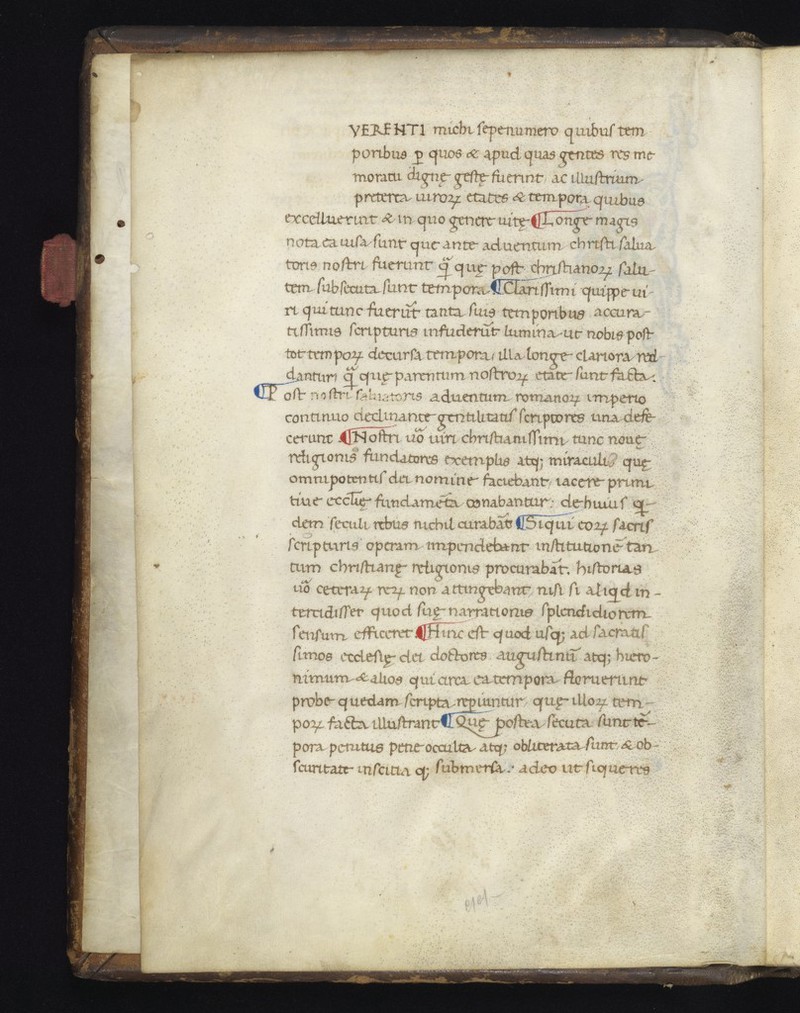 VERENTI michi sepenumero quibus tem
poribus ꝑ quos & apud quas gentes res me
moratu dignę gestę fuerint ac illustrium
preterea uiroꝝ etates & tempora quibus
excelluerint & in quo genere uitę ¶Longe magis
nota ea uisa sunt que ante aduentum christi salua
toris nostri fuerunt q̃ quę post christianoꝝ salu-
tem subsecuta sunt tempora. ¶Clarissimi quippe ui-
ri qui tunc fuerũt tanta suis temporibus accura
tissimis scripturis infuderũt lumina ut nobis post
tot tempoꝝ decursa tempora, illa longe clariora red
dantur, q̃ que parentum nostroꝝ etate sunt facta.
¶Post nostri saluatoris aduentum romanoꝝ imperio
continuo declinante gentilitatis scriptores una defe
cerunt. ¶Nostri uõ uiri christianissimi tunc nouę
religionis fundatores exemplis atq; miraculis quę
omnipotentis dei nomine faciebant iacere primi
tiue ecclĩę fundamẽta conabantur: de huius q̃-
dem seculi rebus nichil curabãt ¶Si qui eoꝝ sacris
scripturis operam impendebant institutionẽ tan
tum christianę religionis procurabãt. historias
uõ ceteraꝝ reꝝ non attingebant, nisi si aliqid in-
tercidisset quod suę narrationis splendidiorem
sensum efficeret ¶Hinc est quod usq; ad sacratis
simos ecclesię dei doctores augustinũ atq; hiero-
nimum & alios qui circa ea tempora floruerunt
probe quedam scripta repiuntur quę illoꝝ tem-
poꝝ facta illustrant ¶Quę postea secuta sunt tẽ-
pora penitus pene occulta atq; obliterata sunt & ob-
scuritate inscitia q; submersa. adeo ut siqueres